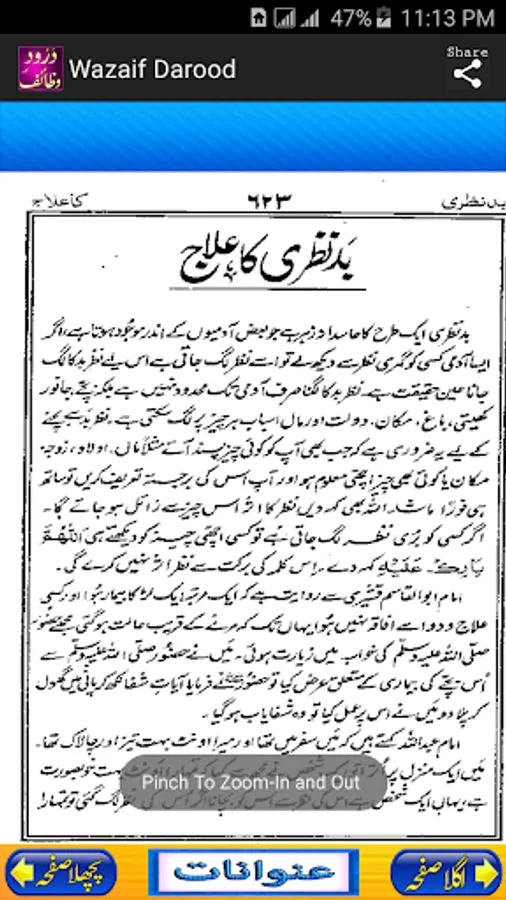 47% 11:13 PM
درود وظائف
Wazaif Darood
Share
بدنظری ۶۲۳ کا علاج
بَدنظری کا علاج
بدنظری ایک طرح کا حاسدانہ زہر ہے جو بعض آدمیوں کے اندر موجود ہوتا ہے، اگر
ایسا آدمی کسی کو گہری نظر سے دیکھ لے تو اسے نظر لگ جاتی ہے اس لیے نظر بد کا لگ
جانا عین حقیقت ہے۔ نظر بد کا لگنا صرف آدمی تک محدود نہیں ہے بلکہ بچے، جانور
کھیتی، باغ، مکان، دولت اور مال اسباب ہر چیز پر لگ سکتی ہے۔ نظر بد سے بچنے
کے لیے یہ ضروری ہے کہ جب بھی آپ کو کوئی چیز پسند آئے مثلاً ماں، اولاد، زوجہ
مکان یا کوئی بھی چیز اچھی معلوم ہو اور آپ اس کی برجستہ تعریف کریں تو ساتھ
ہی فوراً ماشاء اللہ بھی کہہ دیں نظر کا اثر اس چیز سے زائل ہو جائے گا۔
اگر کسی کو بُری نظر لگ جاتی ہے تو کسی اچھی چیز کو دیکھتے ہی اَللّٰهُمَّ
بَارِكْ عَلَيْهِ کہہ دے۔ اس کلمہ کی برکت سے نظر اثر نہیں کرے گی۔
امام ابوالقاسم قشیری سے روایت ہے کہ ایک مرتبہ ایک لڑکا بیمار ہوا اور کسی
علاج و دوا سے افاقہ نہیں ہوا یہاں تک کہ مرنے کے قریب حالت ہوگئی مجھے حضور
صلی اللہ علیہ وسلم کی خواب میں زیارت ہوئی۔ میں نے حضور صلی اللہ علیہ وسلم سے
اُس بچے کی بیماری کے متعلق عرض کیا تو حضور ﷺ نے فرمایا آیاتِ شفا لکھ کر پانی میں گھول
کر پلا دو میں نے اس پر عمل کیا تو وہ شفایاب ہوگیا۔
امام عبداللہ کہتے ہیں کہ میں سفر میں تھا اور میرا اونٹ بہت تیز اور چالاک تھا۔
میں ایک منزل پر شخص نے بہت خوبصورت
ہے یہاں ایک شخص ہے اس کی نظر سے اس کو بچانا اگر اس کی نظر لگ گئی تو تمہارا
Pinch To Zoom-In and Out
پچھلا صفحہ عنوانات اگلا صفحہ